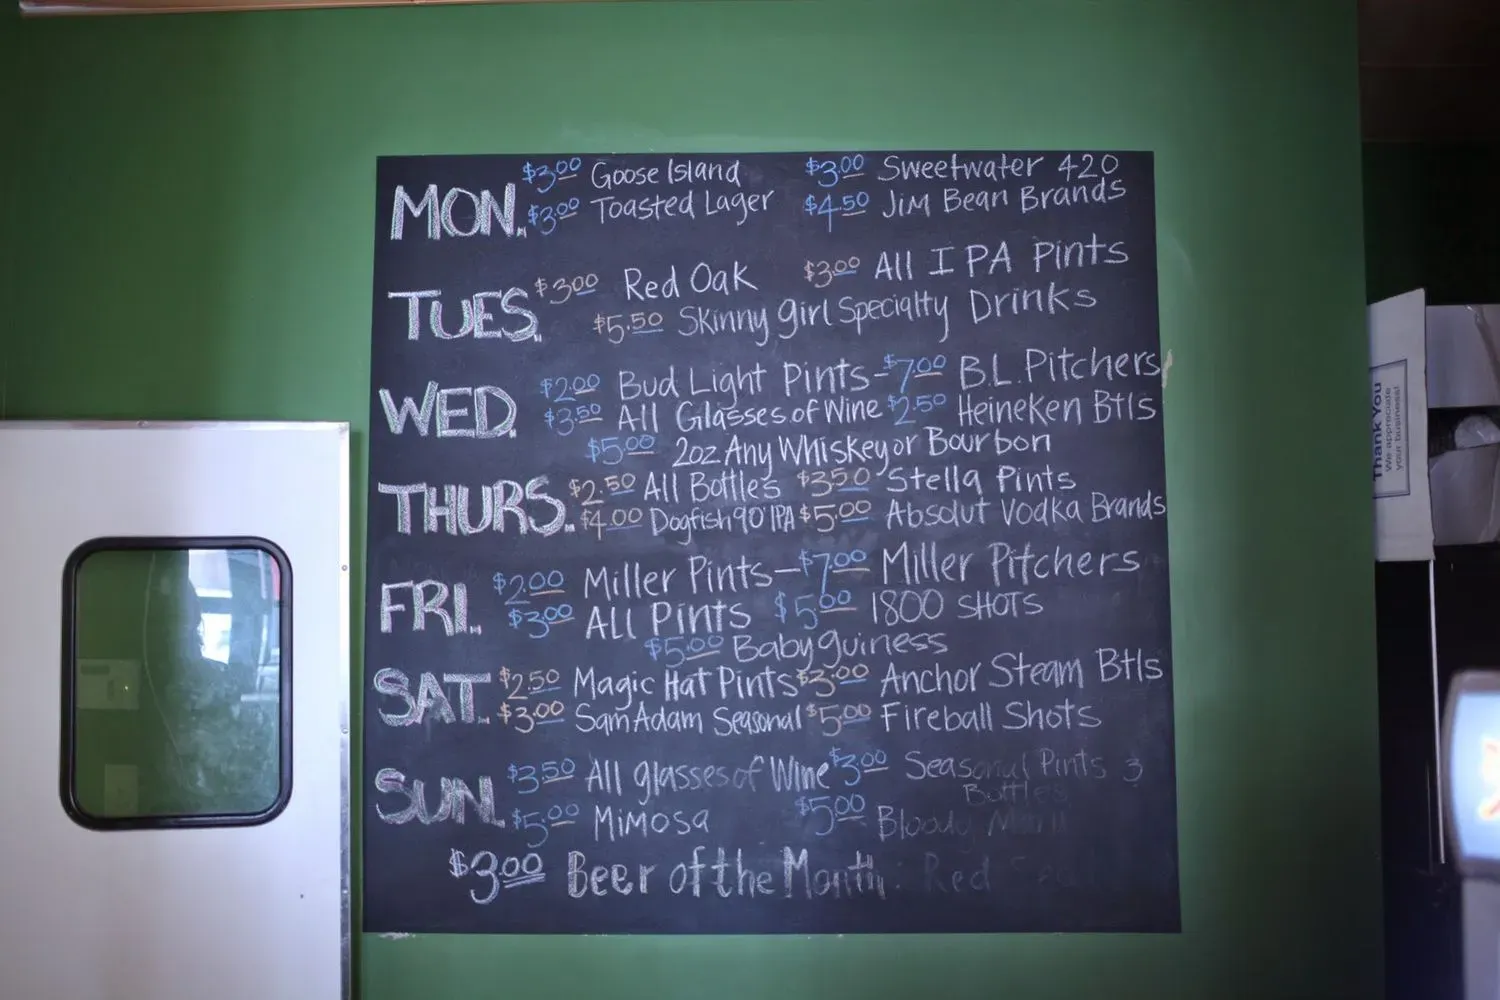 MON. $3.00 Goose Island $3.00 Sweetwater 420
$3.00 Toasted Lager $4.50 Jim Bean Brands
TUES. $3.00 Red Oak $3.00 All IPA Pints
$5.50 Skinny girl Specialty Drinks
WED. $2.00 Bud Light Pints - $7.00 B.L. Pitchers
$3.50 All Glasses of Wine $2.50 Heineken Btls
$5.00 2oz Any Whiskey or Bourbon
THURS. $2.50 All Bottles $3.50 Stella Pints
$4.00 Dogfish 90 IPA $5.00 Absolut Vodka Brands
FRI. $2.00 Miller Pints - $7.00 Miller Pitchers
$3.00 ALL Pints $5.00 1800 SHOTS
$5.00 Baby guiness
SAT. $2.50 Magic Hat Pints $3.00 Anchor Steam Btls
$3.00 Sam Adam Seasonal $5.00 Fireball Shots
SUN. $3.50 All glasses of Wine $3.00 Seasonal Pints &
Bottles
$5.00 Mimosa $5.00 Bloody
$3.00 Beer of the Month: Red
Thank You
We appreciate
your business!